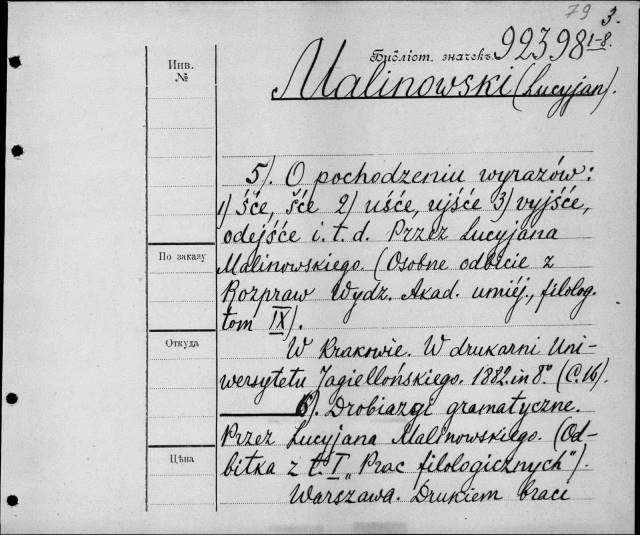 79 3.
Инв.
№
Библіот. значекъ. 92398 1-8.
Malinowski (Lucyjan).
5). O pochodzeniu wyrazów:
1) śće, šće 2) uśće, ujśće 3) vyjśće,
odejśće i. t. d. Przez Lucyjana
По заказу
Malinowskiego. (Osobne odbicie z
Rozpraw Wydz. Akad. umiéj., filolog.
tom IX).
Откуда
W Krakowie. W drukarni Uni-
wersytetu Jagiellońskiego. 1882. in 8º. (C. 16).
6). Drobiazgi gramatyczne.
Przez Lucyjana Malinowskiego. (Od-
Цѣна
bitka z t. I „Prac filologicznych").
Warszawa. Drukiem braci